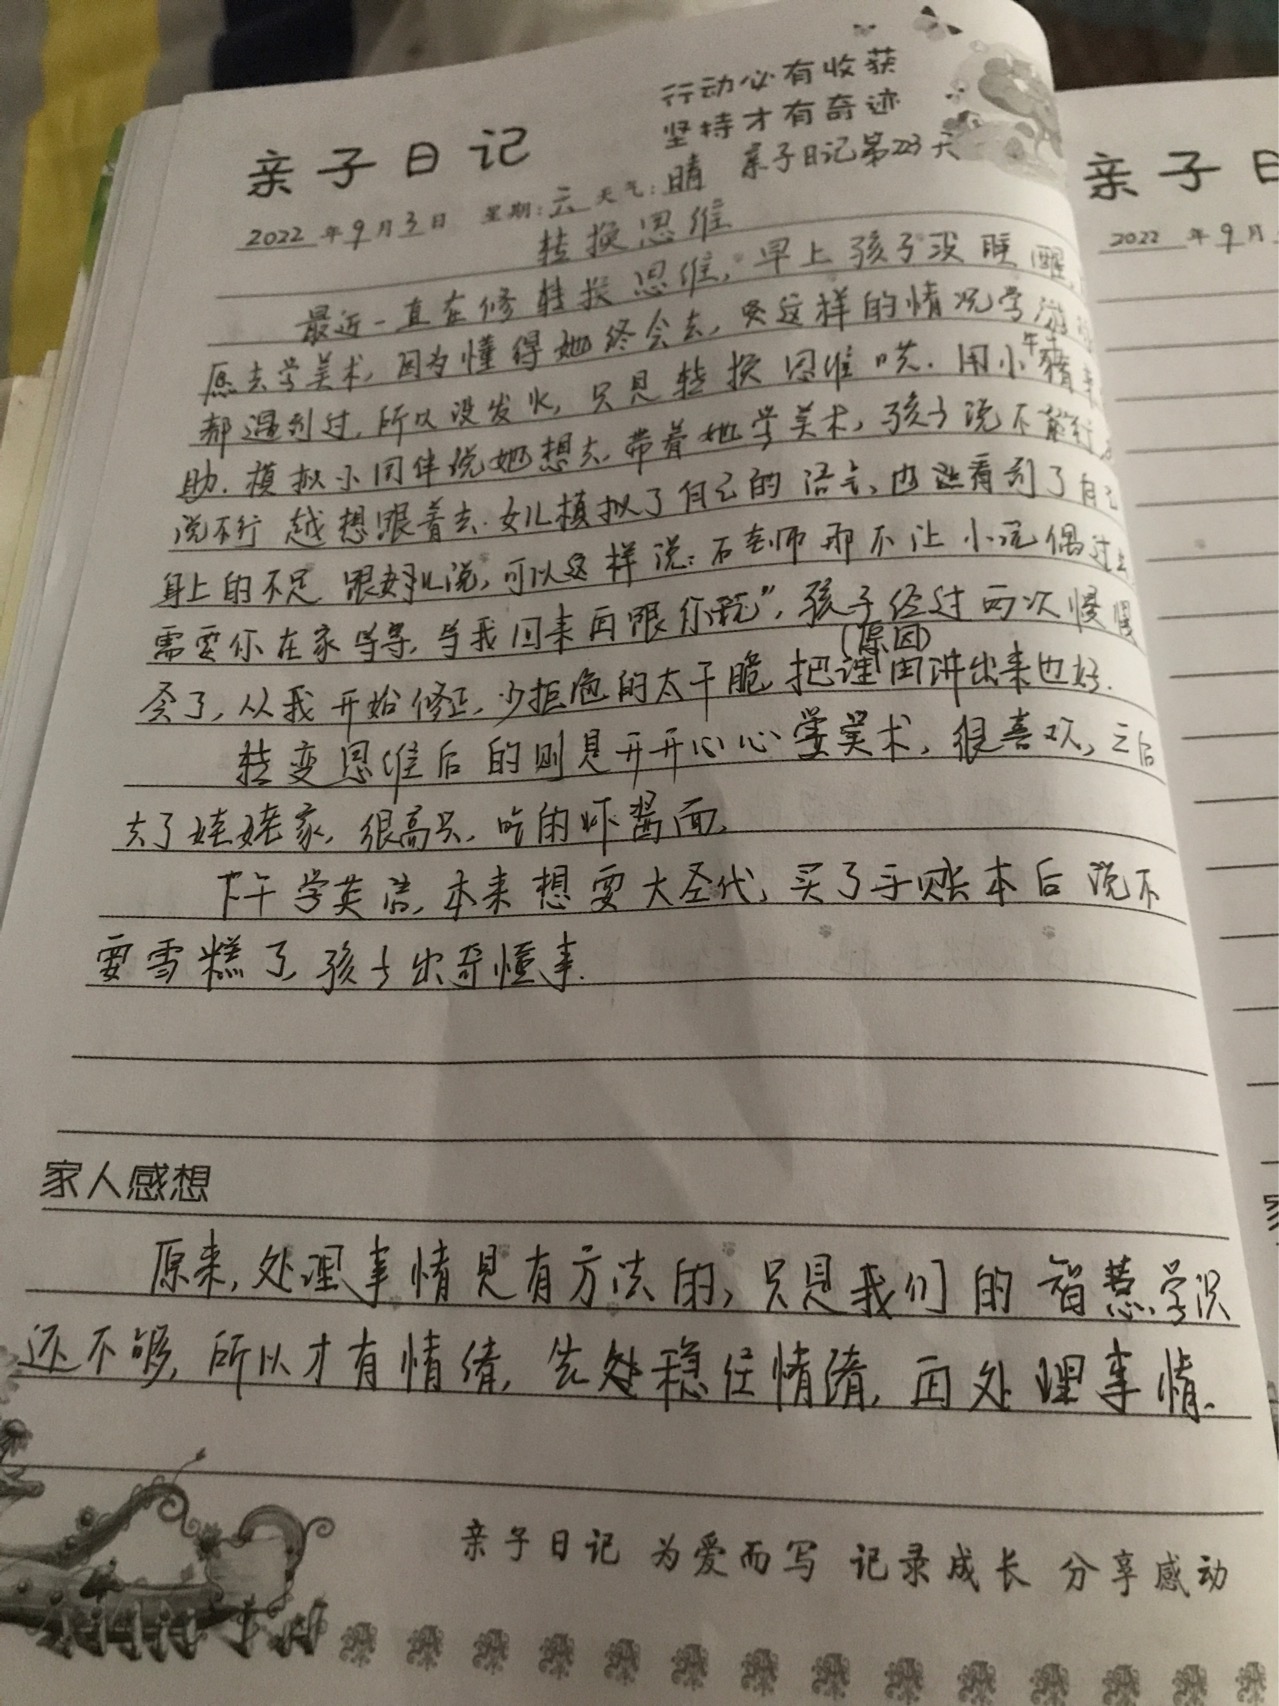 行动必有收获
坚持才有奇迹
亲子日记
亲子日记第223天
2022年9月3日 星期:六 天气:晴
转换思维
最近一直在修转换思维,早上孩子没睡醒,
愿去学美术,因为懂得她终会去,这样的情况学
都遇到过,所以没发火,只是转换思维哄.用小
助.模拟小同伴说她想去,带着她学美术,孩子说不能行
说不行 越想跟着去.女儿模拟了自己的语言,也看到了自己
身上的不足 跟女儿说,可以这样说:石老师那不让小玩偶过去
需要你在家等等,等我回来再跟你玩",孩子经过两次慢慢
会了,从我开始修正,少拒绝的太干脆,把理由(原因)讲出来也好.
转变思维后的则是开开心心学美术,很喜欢,之后
去了姥姥家,很高兴,吃的炸酱面,
下午学英语,本来想要大圣代,买了手账本后说不
要雪糕了,孩子出奇懂事.
家人感想
原来,处理事情是有方法的,只是我们的智慧学识
还不够,所以才有情绪,先处稳住情绪,再处理事情.
亲子日记 为爱而写 记录成长 分享感动
亲子日
2022年9月